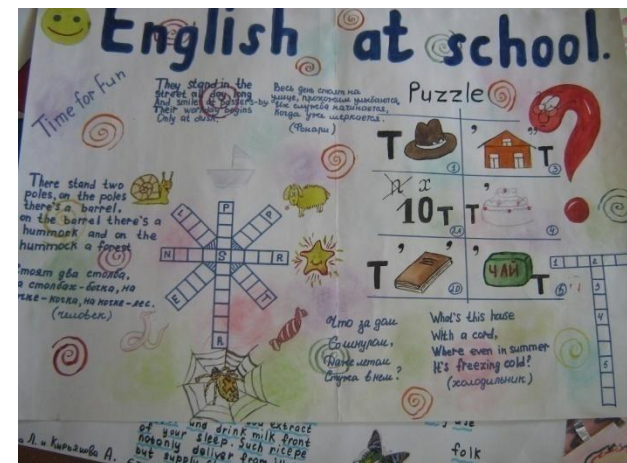 English at school.
Time for Fun
They stand in the
Street all day long
And smile at passers-by
Their workday begins
Only at dusk.
Весь день стоят на
улице, прохожим улыбаются,
их служба начинается,
Когда уже меркается.
(Фонари)
Puzzle
T
1
'
"
T
3
x
10T
T'
4
T'
'
ЧАЙ
T
There stand two
poles, on the poles
there's a barrel,
on the barrel there's a
hummock and on the
hummock a forest
стоят два столба,
а столбах-бочка, на
чке-кочка, на кочке-лес.
(человек)
P
P
L
N
S
R
E
T
R
1
2
3
4
5
Что за дом
Со шнуром,
Даже летом
Стужа в нем?
What's this house
With a cord,
Where even in summer
It's freezing cold?
(холодильник)
Л. и Кирьянова А.
and drink milk front
of your sleep. Such ricepe
not only deliver from
but supply
folk